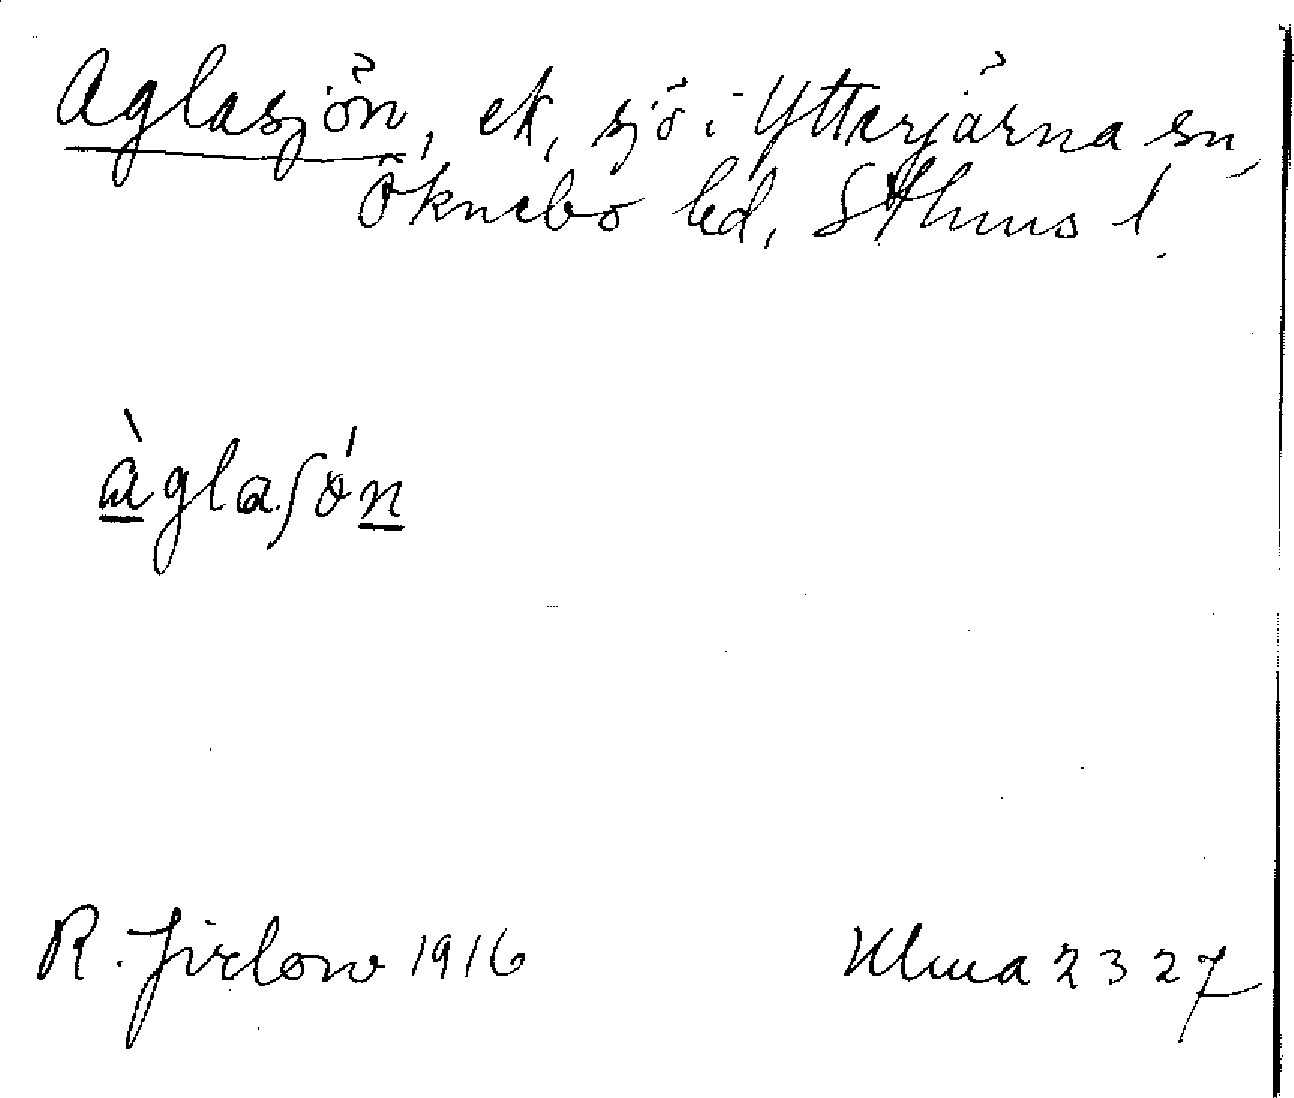 Aglasjön, ek, sjö i Ytterjärna sn,
Öknebo hd, Sthms l.
àglaʃón
R. Jirlow 1916
Uma 2327